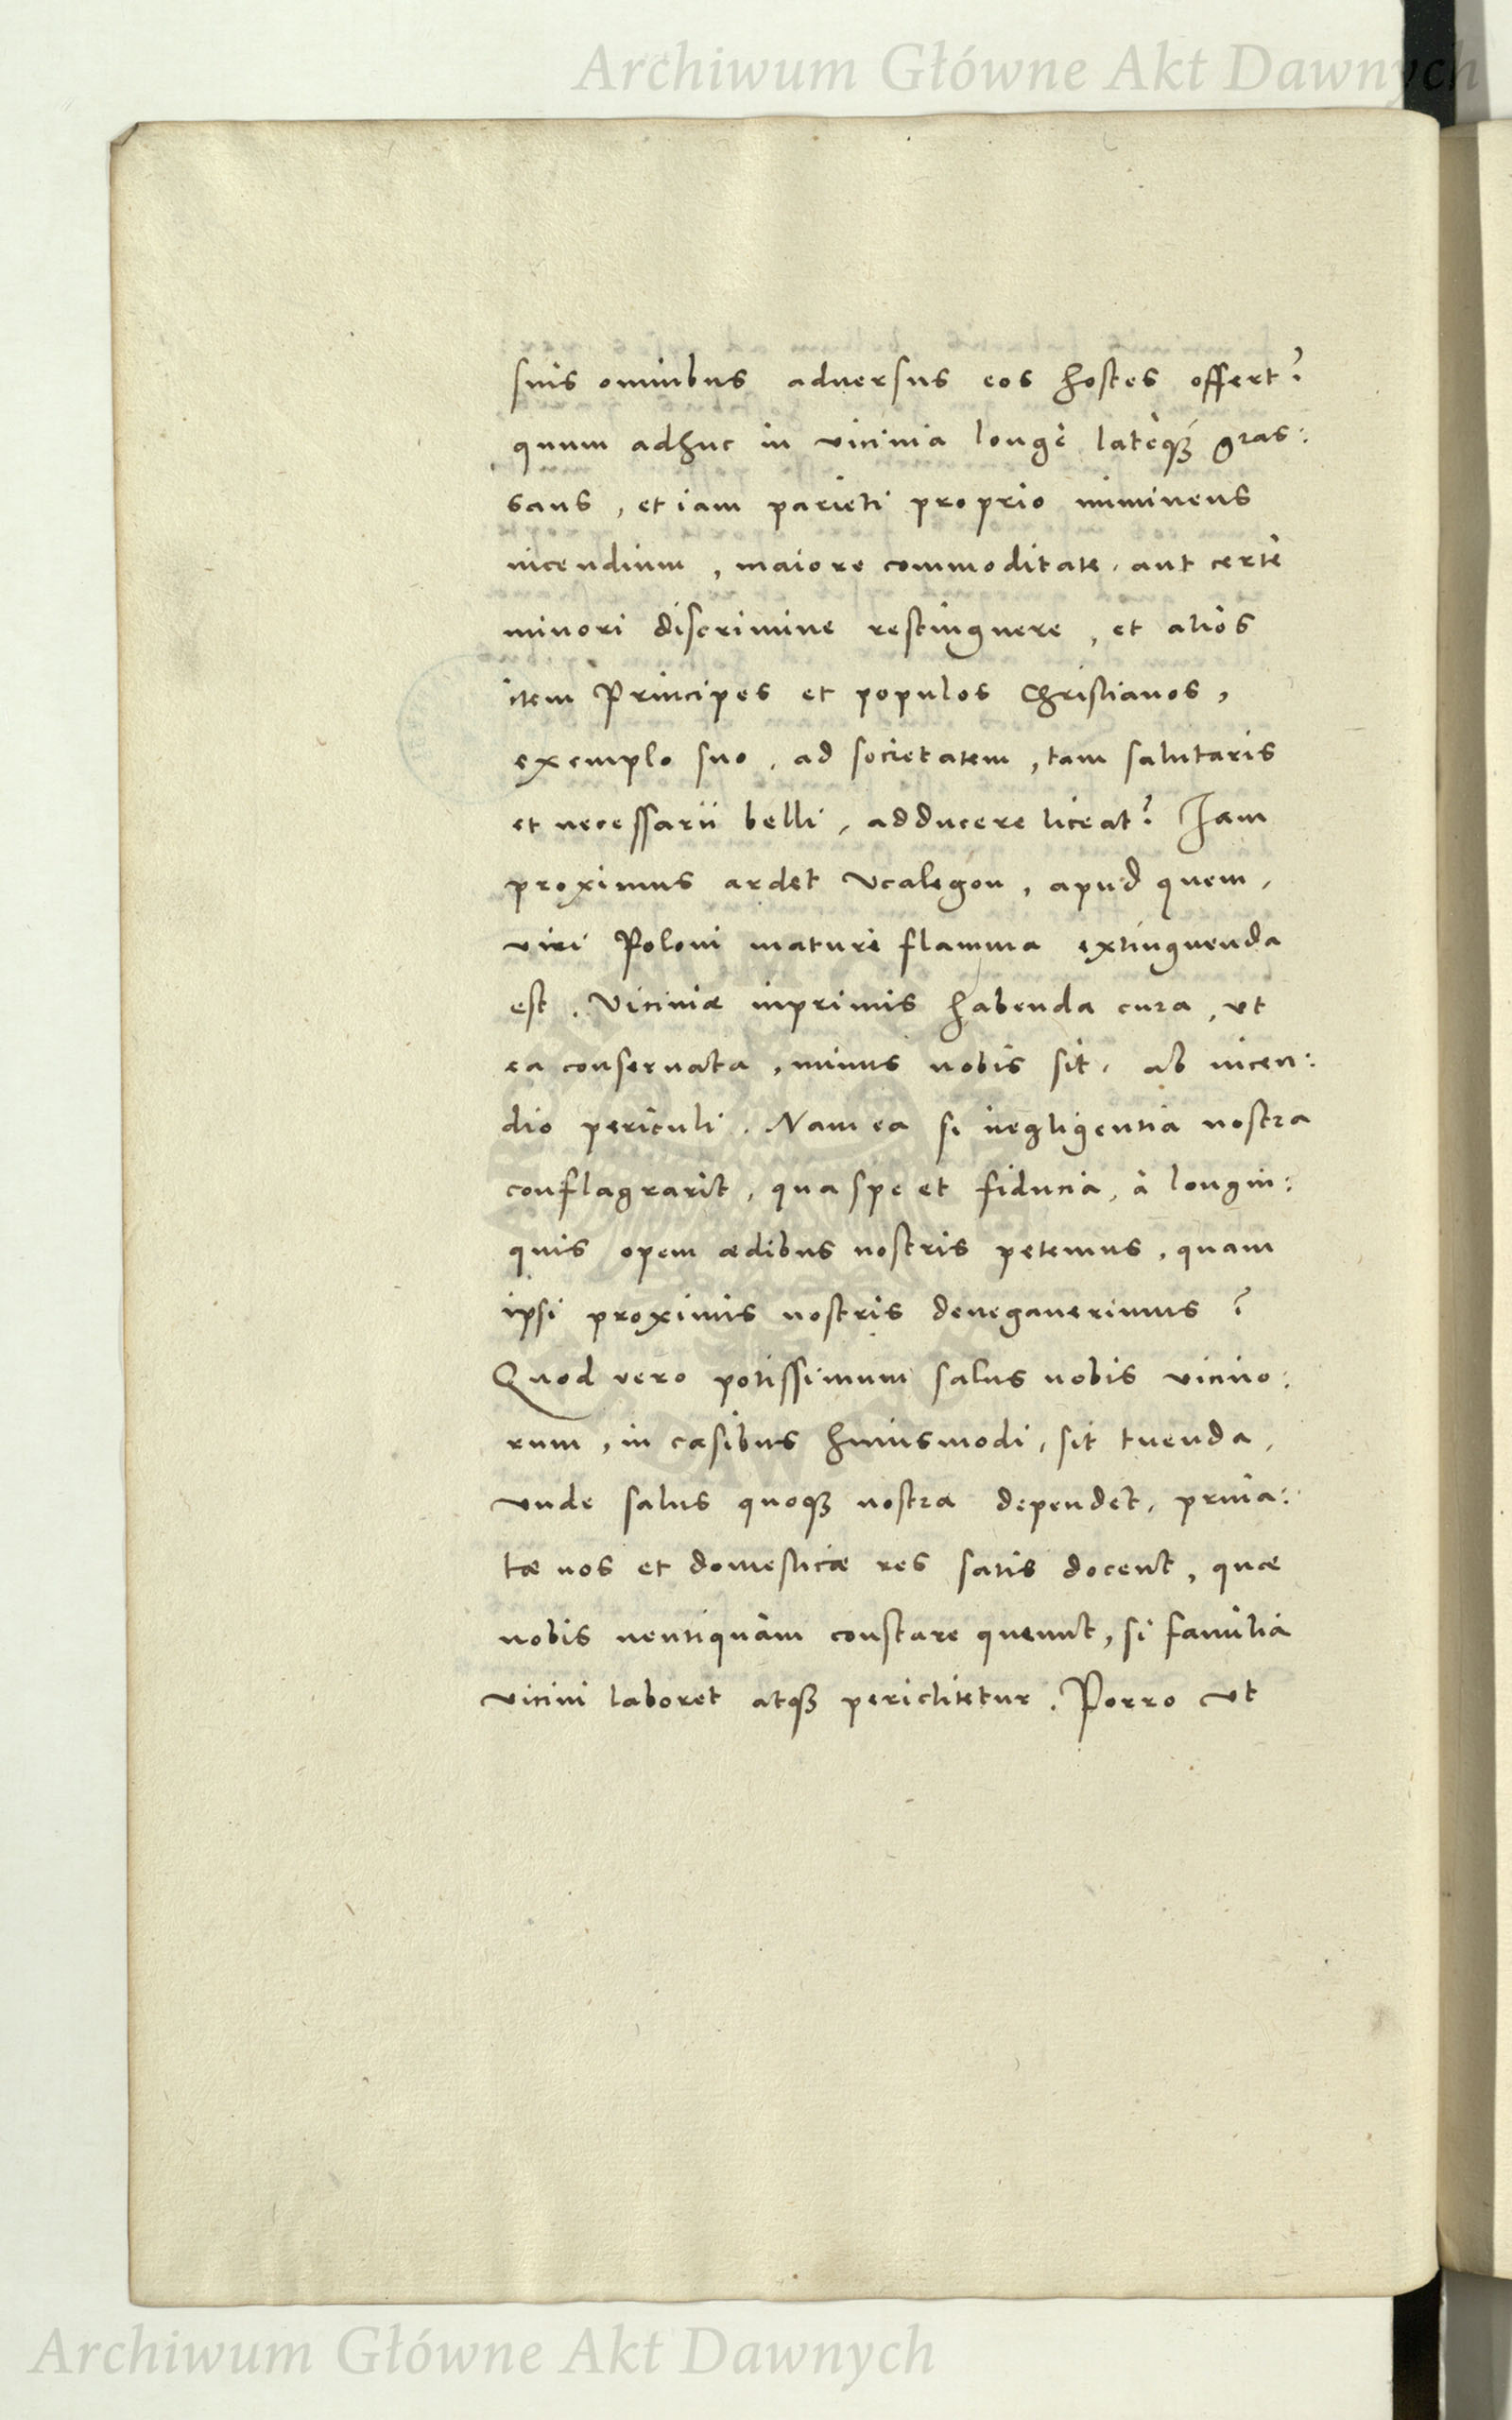 Archiwum Główne Akt Dawnych
suis omnibus aduersus eos hostes offert?
quum adhuc in vicinia longè latèq3 gras:
sans, et iam parieti proprio imminens
incendium, maiore commoditate, aut certè
minori discrimine restinguere, et alios
item Principes et populos Christianos,
exemplo suo, ad societatem, tam salutaris
et necessarii belli, adducere liceat? Iam
proximus ardet Vcalegon, apud quem,
viri Poloni maturè flamma extinguenda
est. Viciniæ inprimis habenda cura, vt
ea conseruata, minus nobis sit, ab incen:
dio periculi. Nam ea si negligentia nostra
conflagrarit, qua spe et fiducia, à longin:
quis opem ædibus nostris petemus, quam
ipsi proximis nostris denegauerimus?
Quod vero potissimum salus nobis vicino:
rum, in casibus huiusmodi, sit tuenda,
vnde salus quoq3 nostra dependet, priua:
tæ nos et domesticæ res satis docent, quæ
nobis neutiquàm constare queunt, si familia
vicini laboret atq3 periclitetur. Porro vt
Archiwum Główne Akt Dawnych